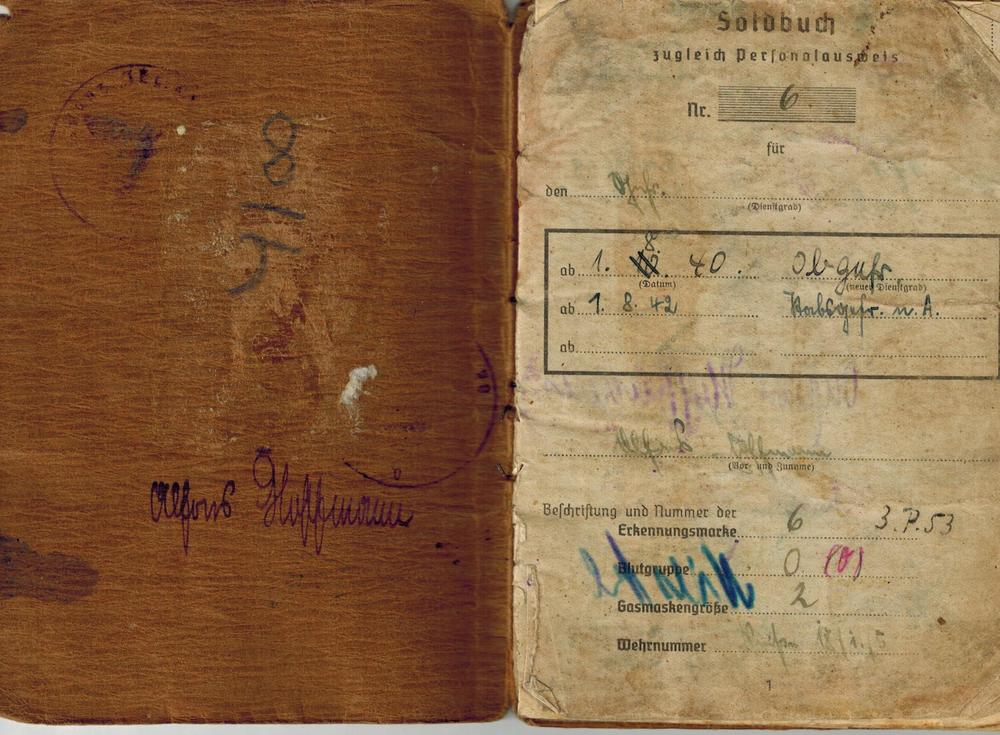 8/14
Alfons Hoffmann
Soldbuch
zugleich Personalausweis
Nr. 6
für
den
(Dienstgrad)
ab 1. 8. 40. Obgefr
(Datum) (neuer Dienstgrad)
ab 1. 8. 42 Stabsgefr. n. A.
ab
(Vor- und Zuname)
Beschriftung und Nummer der
Erkennungsmarke 6 3.P.53
Blutgruppe O (O)
Gasmaskengröße 2
Wehrnummer
1